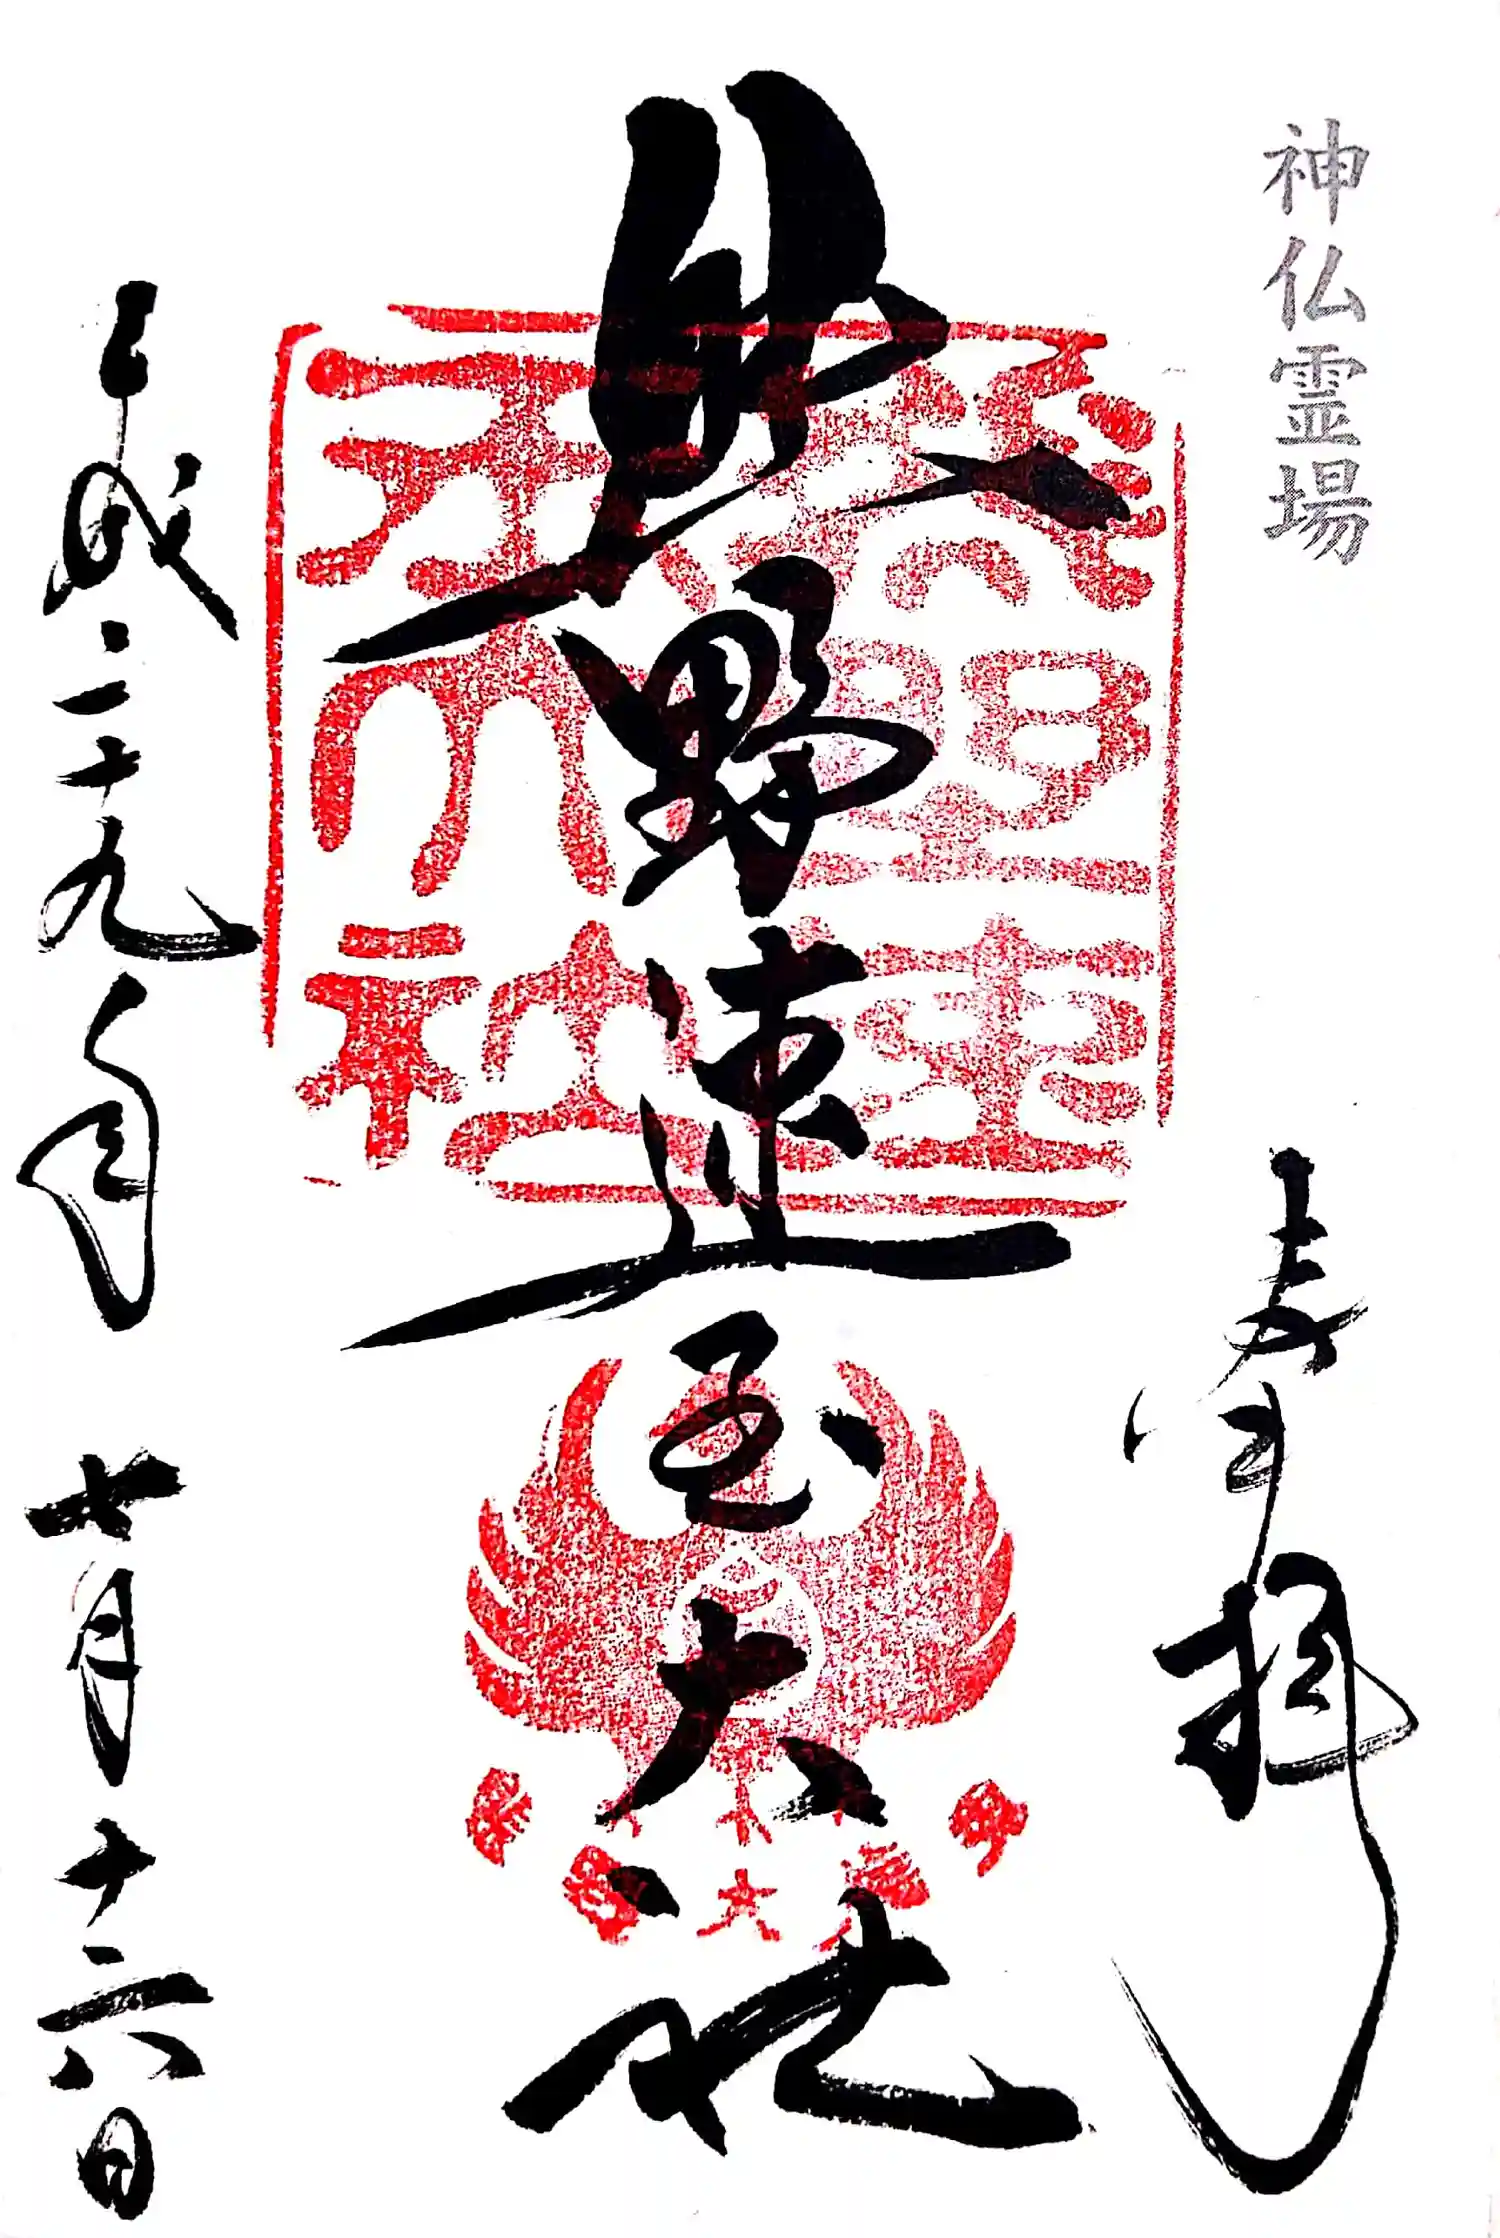 神仏霊場
奉拝
熊野速玉大社
熊野速玉大社
平成二十九年七月十六日